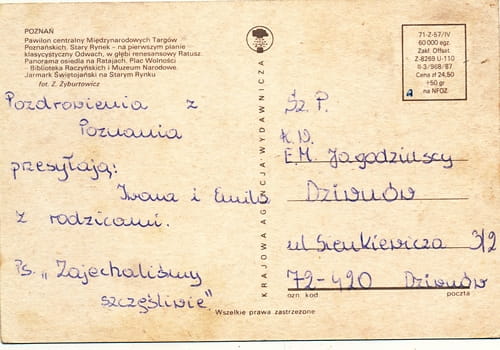 POZNAŃ
Pawilon centralny Międzynarodowych Targów
Poznańskich. Stary Rynek – na pierwszym planie
klasycystyczny Odwach, w głębi renesansowy Ratusz.
Panorama osiedla na Ratajach. Plac Wolności
Biblioteka Raczyńskich i Muzeum Narodowe.
Jarmark Świętojański na Starym Rynku
fot. Z. Żyburtowicz
Pozdrowienia z
Poznania
przesyłają:
Iwona i Emila
z rodzicami.
Ps. „Zajechaliśmy
szczęśliwie".
KRAJOWA AGENCJA WYDAWNICZA
71-Z-57/IV
60 000 egz.
Zakł. Offset.
Z-8269 U-110
II-3/968/87
Cena zł 24,50
+50 gr
na NFOZ
Sz. P.
E.M. Jagodzińscy
Dziwnów
ul Sienkiewicza 3/2
72-420 Dziwnów
ozn kod poczta
Wszelkie prawa zastrzeżone